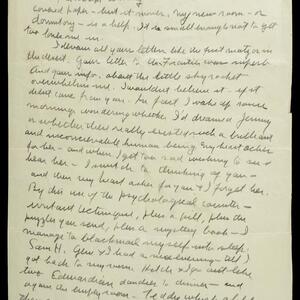 covered paper - but it moves, my new room - or
- is a help. It is small enough not to get
too lost in.
I devour all your letters like the first meaty
Your letter to was superb
And your info. about the little sky rocket
overwhelms me. I wouldn't believe it - if it
didn't come from you. In fact I wake up some
mornings wondering whether I'd dreamed Jenny
or whether there really existed such a brilliant
and inconceivable human being. My heart aches
for her - and when I get too sad wishing to see &
hear her - I switch to thinking of you -
and then my heart aches for you & I forget her.
By dint use of the psychological counter-
irritant technique, plus a pill, plus the
puzzles you send, plus a mystery book - I
manage to blackmail myself into sleep.
Sam H., Gen & I had a nice evening - till I
got back to my room.
two Edwardian dandies to dinner - and
again the empty room -